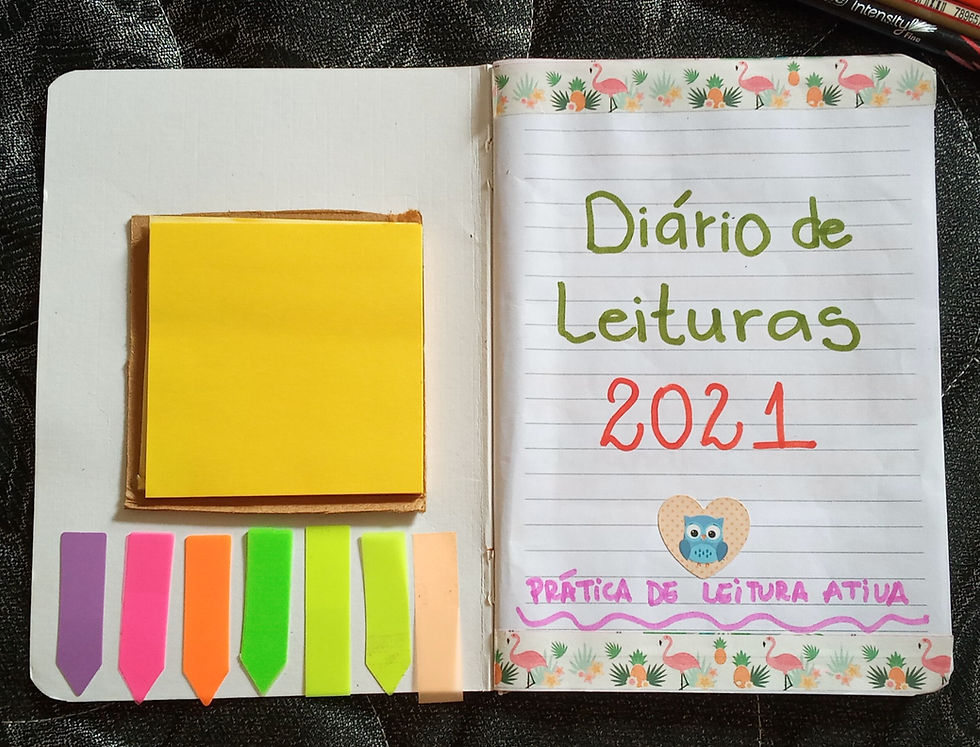 Intensity
Fine
Diário de
Leituras
2021
PRÁTICA DE LEITURA ATIVA